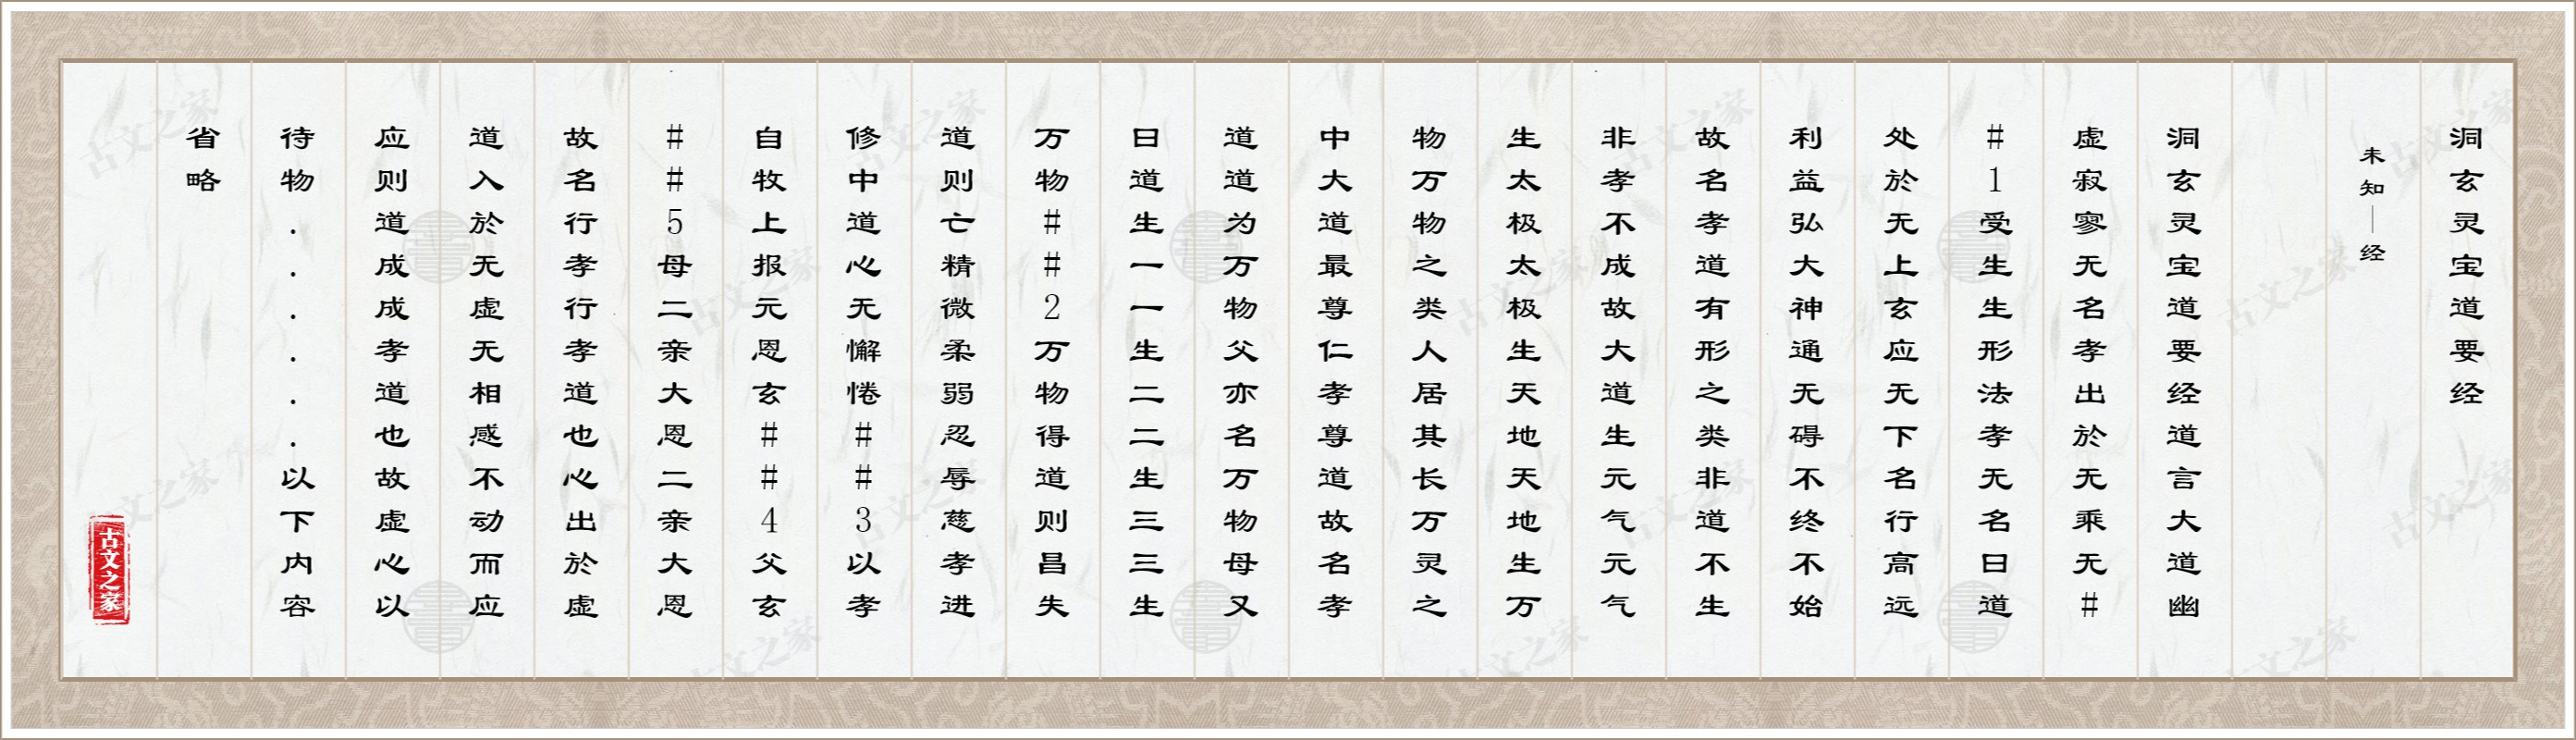 洞玄灵宝道要经
未知｜经
洞玄灵宝道要经道言大道幽
虚寂寥无名孝出於无乘无#
#1受生生形法孝无名曰道
处於无上玄应无下名行高远
利益弘大神通无碍不终不始
故名孝道有形之类非道不生
非孝不成故大道生元气元气
生太极太极生天地天地生万
物万物之类人居其长万灵之
中大道最尊仁孝尊道故名孝
道道为万物父亦名万物母又
曰道生一一生二二生三三生
万物##2万物得道则昌失
道则亡精微柔弱忍辱慈孝进
修中道心无懈惓##3以孝
自牧上报元恩玄##4父玄
##5母二亲大恩二亲大恩
故名行孝行孝道也心出於虚
道入於无虚无相感不动而应
应则道成成孝道也故虚心以
待物......以下内容
省略
古文之家